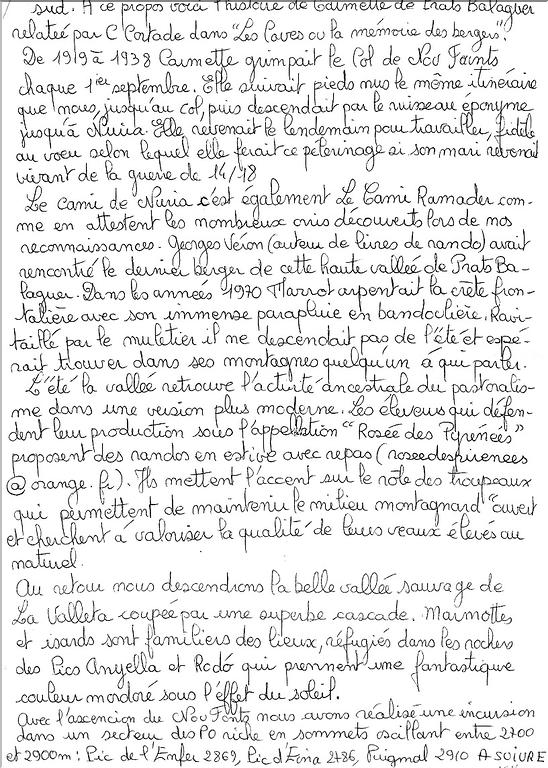 sud. A ce propos voici l'histoire de Calmette de Prats Balaguer
relatée par C Cortade dans "Les Caves ou la mémoire des bergers".
De 1919 à 1938 Caumette grimpait le Col de Nou Fonts
chaque 1ier septembre. Elle suivait pieds nus le même itinéraire
que nous, jusqu'au col, puis descendait par le ruisseau éponyme
jusqu'à Nuria. Elle revenait le lendemain pour travailler, fidèle
au voeu selon lequel elle ferait ce pèlerinage si son mari revenait
vivant de la guerre de 14/18
Le cami de Nuria c'est également Le Cami Ramader com-
me en attestent les nombreux orris découverts lors de nos
reconnaissances. Georges Véron (auteur de livres de rando) avait
rencontré le dernier berger de cette haute vallée de Prats Ba-
laguer. Dans les années 1970 Marrot arpentait la crête fron-
talière avec son immense parapluie en bandoulière. Ravi-
taillé par le muletier il ne descendait pas de l'été et espé-
rait trouver dans ses montagnes quelqu'un à qui parler.
L'été la vallée retrouve l'activité ancestrale du pastoralis-
me dans une version plus moderne. Les éleveurs qui défen-
dent leur production sous l'appellation "Rosée des Pyrénées"
proposent des randos en estive avec repas (roseedespirenees
@orange.fr). Ils mettent l'accent sur le rôle des troupeaux
qui permettent de maintenir le milieu montagnard "ouvert
et cherchent à valoriser la qualité de leurs veaux élevés au
naturel.
Au retour nous descendrons la belle vallée sauvage de
La Valleta coupée par une superbe cascade. Marmottes
et isards sont familiers des lieux, réfugiés dans les rochers
des Pics Anyella et Rodó qui prennent une fantastique
couleur mordoré sous l'effet du soleil.
Avec l'ascencion du Nou Fonts nous avons réalisé une incursion
dans un secteur des PO riche en sommets oscillant entre 2700
et 2900m: Pic de l'Enfer 2869, Pic d'Eina 2786, Puigmal 2910 A SUIVRE